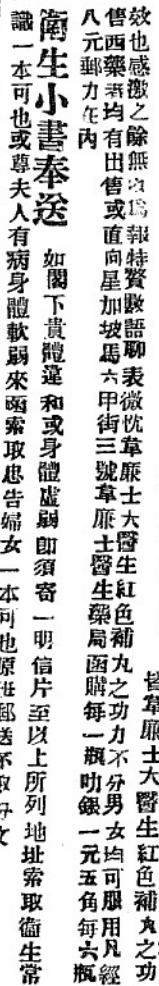 皆韋廉士大醫生紅色補丸之功
效也感激之餘無以爲報特贅數語聊表微忱韋廉士大醫生紅色補丸之功力不分男女均可服用凡經
售西藥者均有出售或直向星加坡馬六甲街三號韋廉士醫生藥局函購每一瓶叻銀一元五角每六瓶
八元郵力在內
衛生小書奉送 如閣下貴體違和或身體虛弱卽須寄一明信片至以上所列地址索取衞生常
識一本可也或尊夫人有病身體軟弱來函索取忠告婦女一本可也原班郵送不取分文